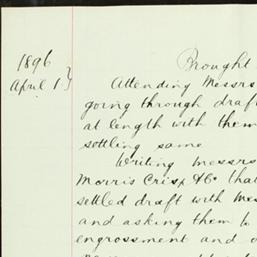 1896
Brought
April 1 } Attending Messrs
going through draft
at length with them
settling same
Writing Messrs
Morris Crisp &Co that
settled draft with Mes
and asking them to
engrossment and